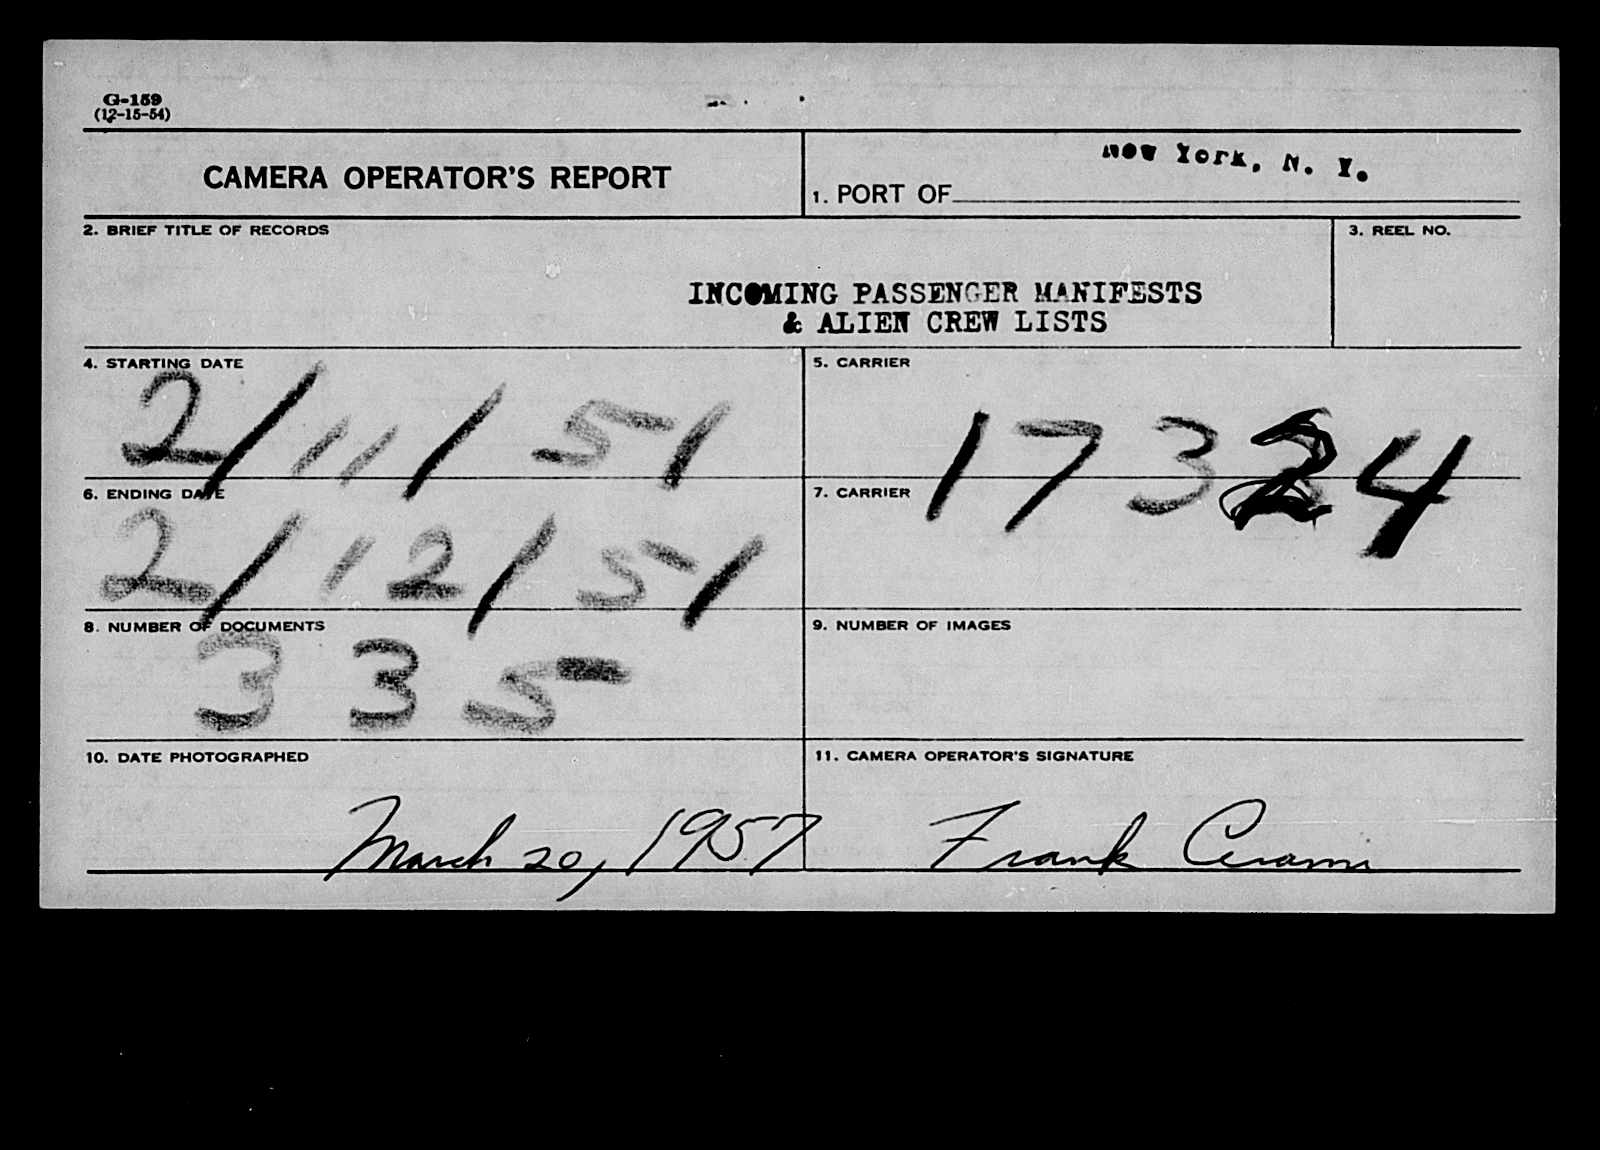 G-159
(12-15-54)
CAMERA OPERATOR'S REPORT
New York, N. Y.
1. PORT OF
2. BRIEF TITLE OF RECORDS
3. REEL NO.
INCOMING PASSENGER MANIFESTS
& ALIEN CREW LISTS
4. STARTING DATE
2/11/51
5. CARRIER
17324
6. ENDING DATE
2/12/51
7. CARRIER
8. NUMBER OF DOCUMENTS
335
9. NUMBER OF IMAGES
10. DATE PHOTOGRAPHED
March 20, 1957
11. CAMERA OPERATOR'S SIGNATURE
Frank